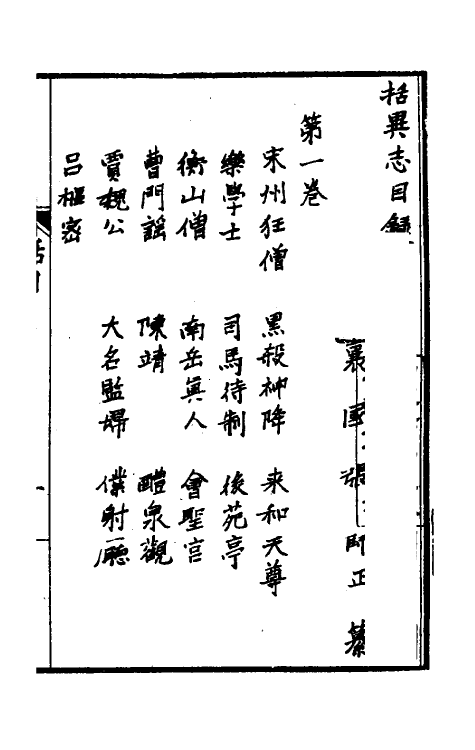 括異志目錄
襄國張師正纂
第一卷
宋州狂僧　黑殺神降　來和天尊
樂學士　司馬待制　後苑亭
衡山僧　南岳真人　會聖宮
曹門謡　陳靖　醴泉觀
賈魏公　大名監婦　僕射廳
吕樞宻